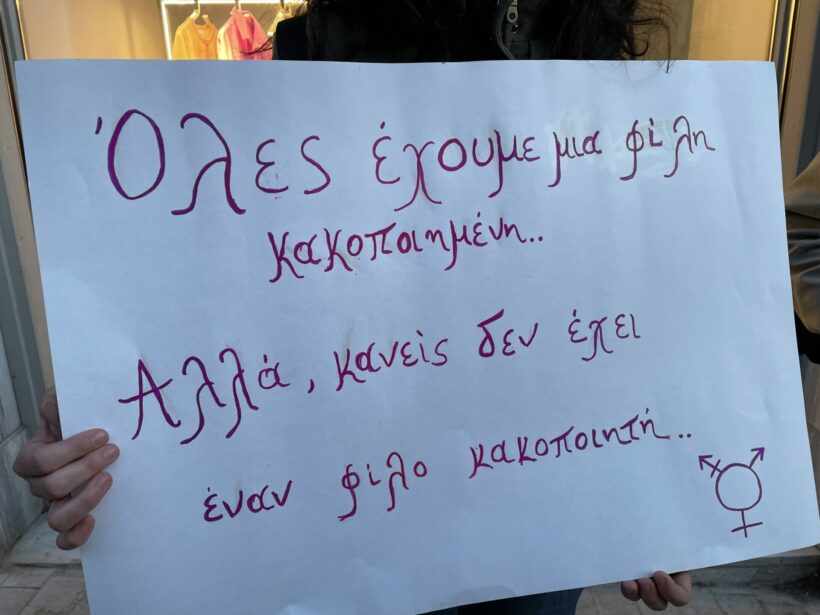 Όλες έχουμε μια φίλη
κακοποιημένη..
Αλλά, κανείς δεν έχει
έναν φίλο κακοποιητή..